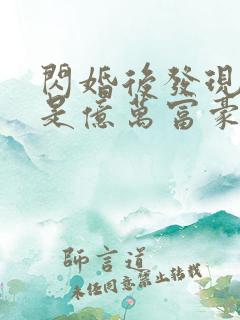 閃婚後發現
是億萬富豪
師言道
未任同意禁止转载